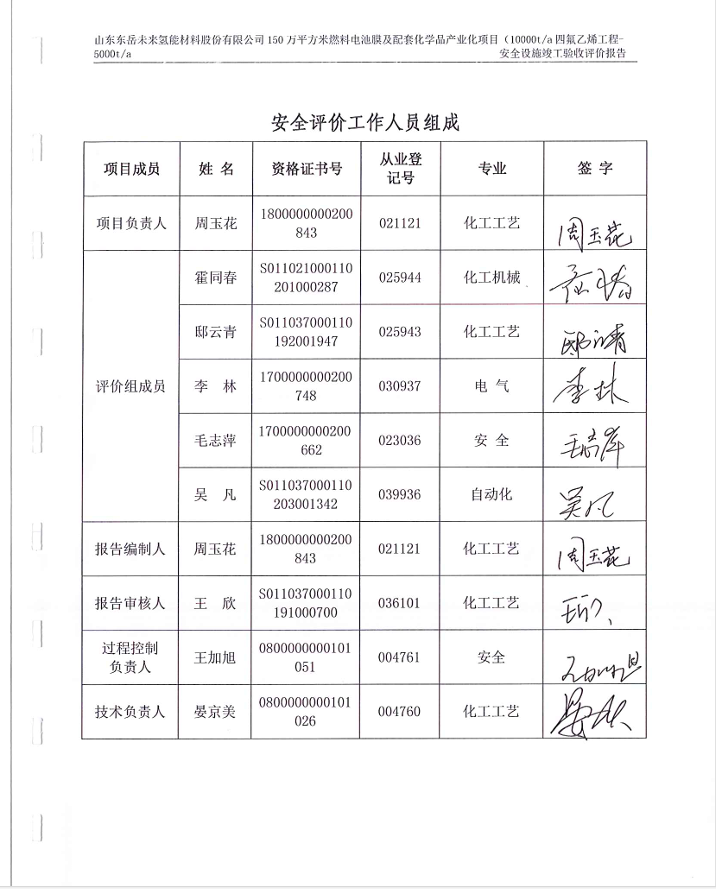 山东东岳未来氢能材料股份有限公司 150 万平方米燃料电池膜及配套化学品产业化项目（10000t/a 四氟乙烯工程-
5000t/a 安全设施竣工验收评价报告
安全评价工作人员组成
项目成员 姓 名 资格证书号 从业登记号 专业 签 字
项目负责人 周玉花 1800000000200843 021121 化工工艺 周玉花
评价组成员 霍同春 S011021000110201000287 025944 化工机械
邸云青 S011037000110192001947 025943 化工工艺 邸云青
李 林 1700000000200748 030937 电 气 李林
毛志萍 1700000000200662 023036 安 全 毛志萍
吴 凡 S011037000110203001342 039936 自动化 吴凡
报告编制人 周玉花 1800000000200843 021121 化工工艺 周玉花
报告审核人 王 欣 S011037000110191000700 036101 化工工艺 王欣
过程控制负责人 王加旭 0800000000101051 004761 安全
技术负责人 晏京美 0800000000101026 004760 化工工艺